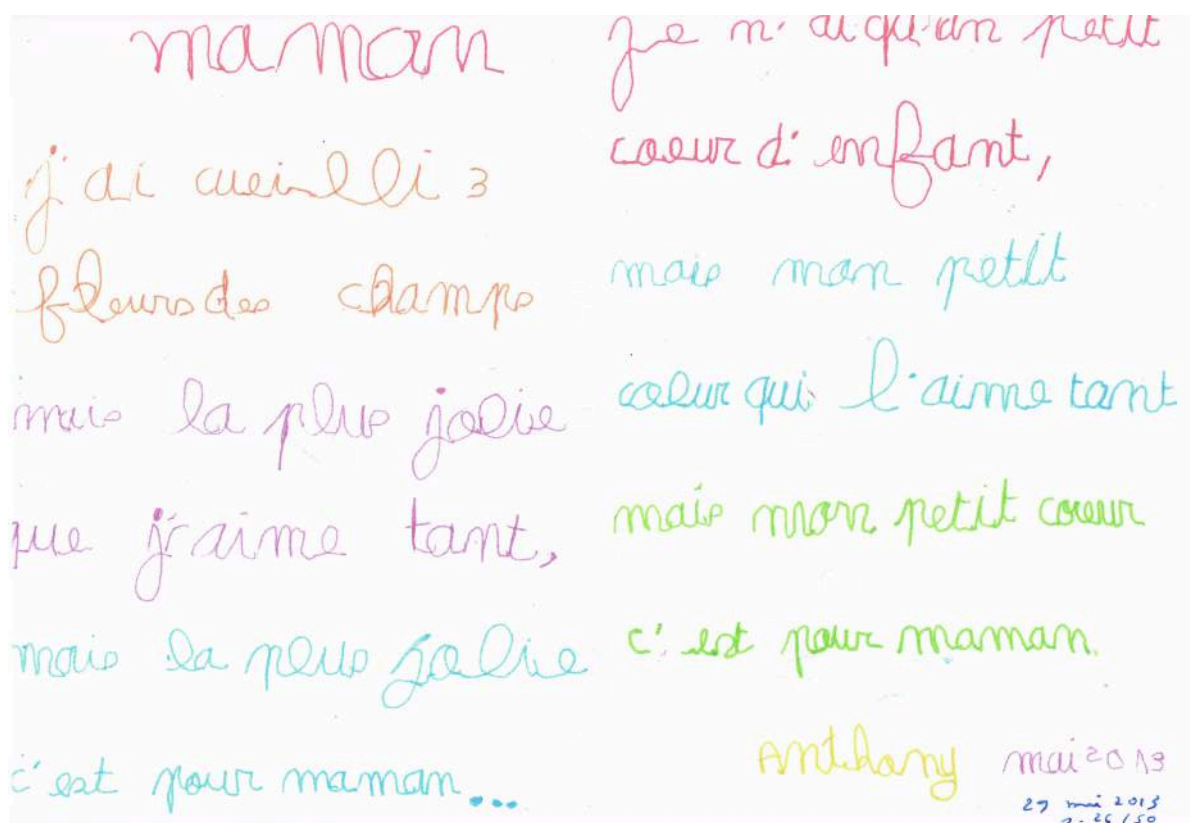 maman
j'ai cueilli 3
fleurs des champs
mais la plus jolie
que j'aime tant,
mais la plus jolie
c'est pour maman...
je n'ai qu'un petit
coeur d'enfant,
mais mon petit
coeur qui l'aime tant
mais mon petit coeur
c'est pour maman.
Anthony mai 2013
29 mai 2013